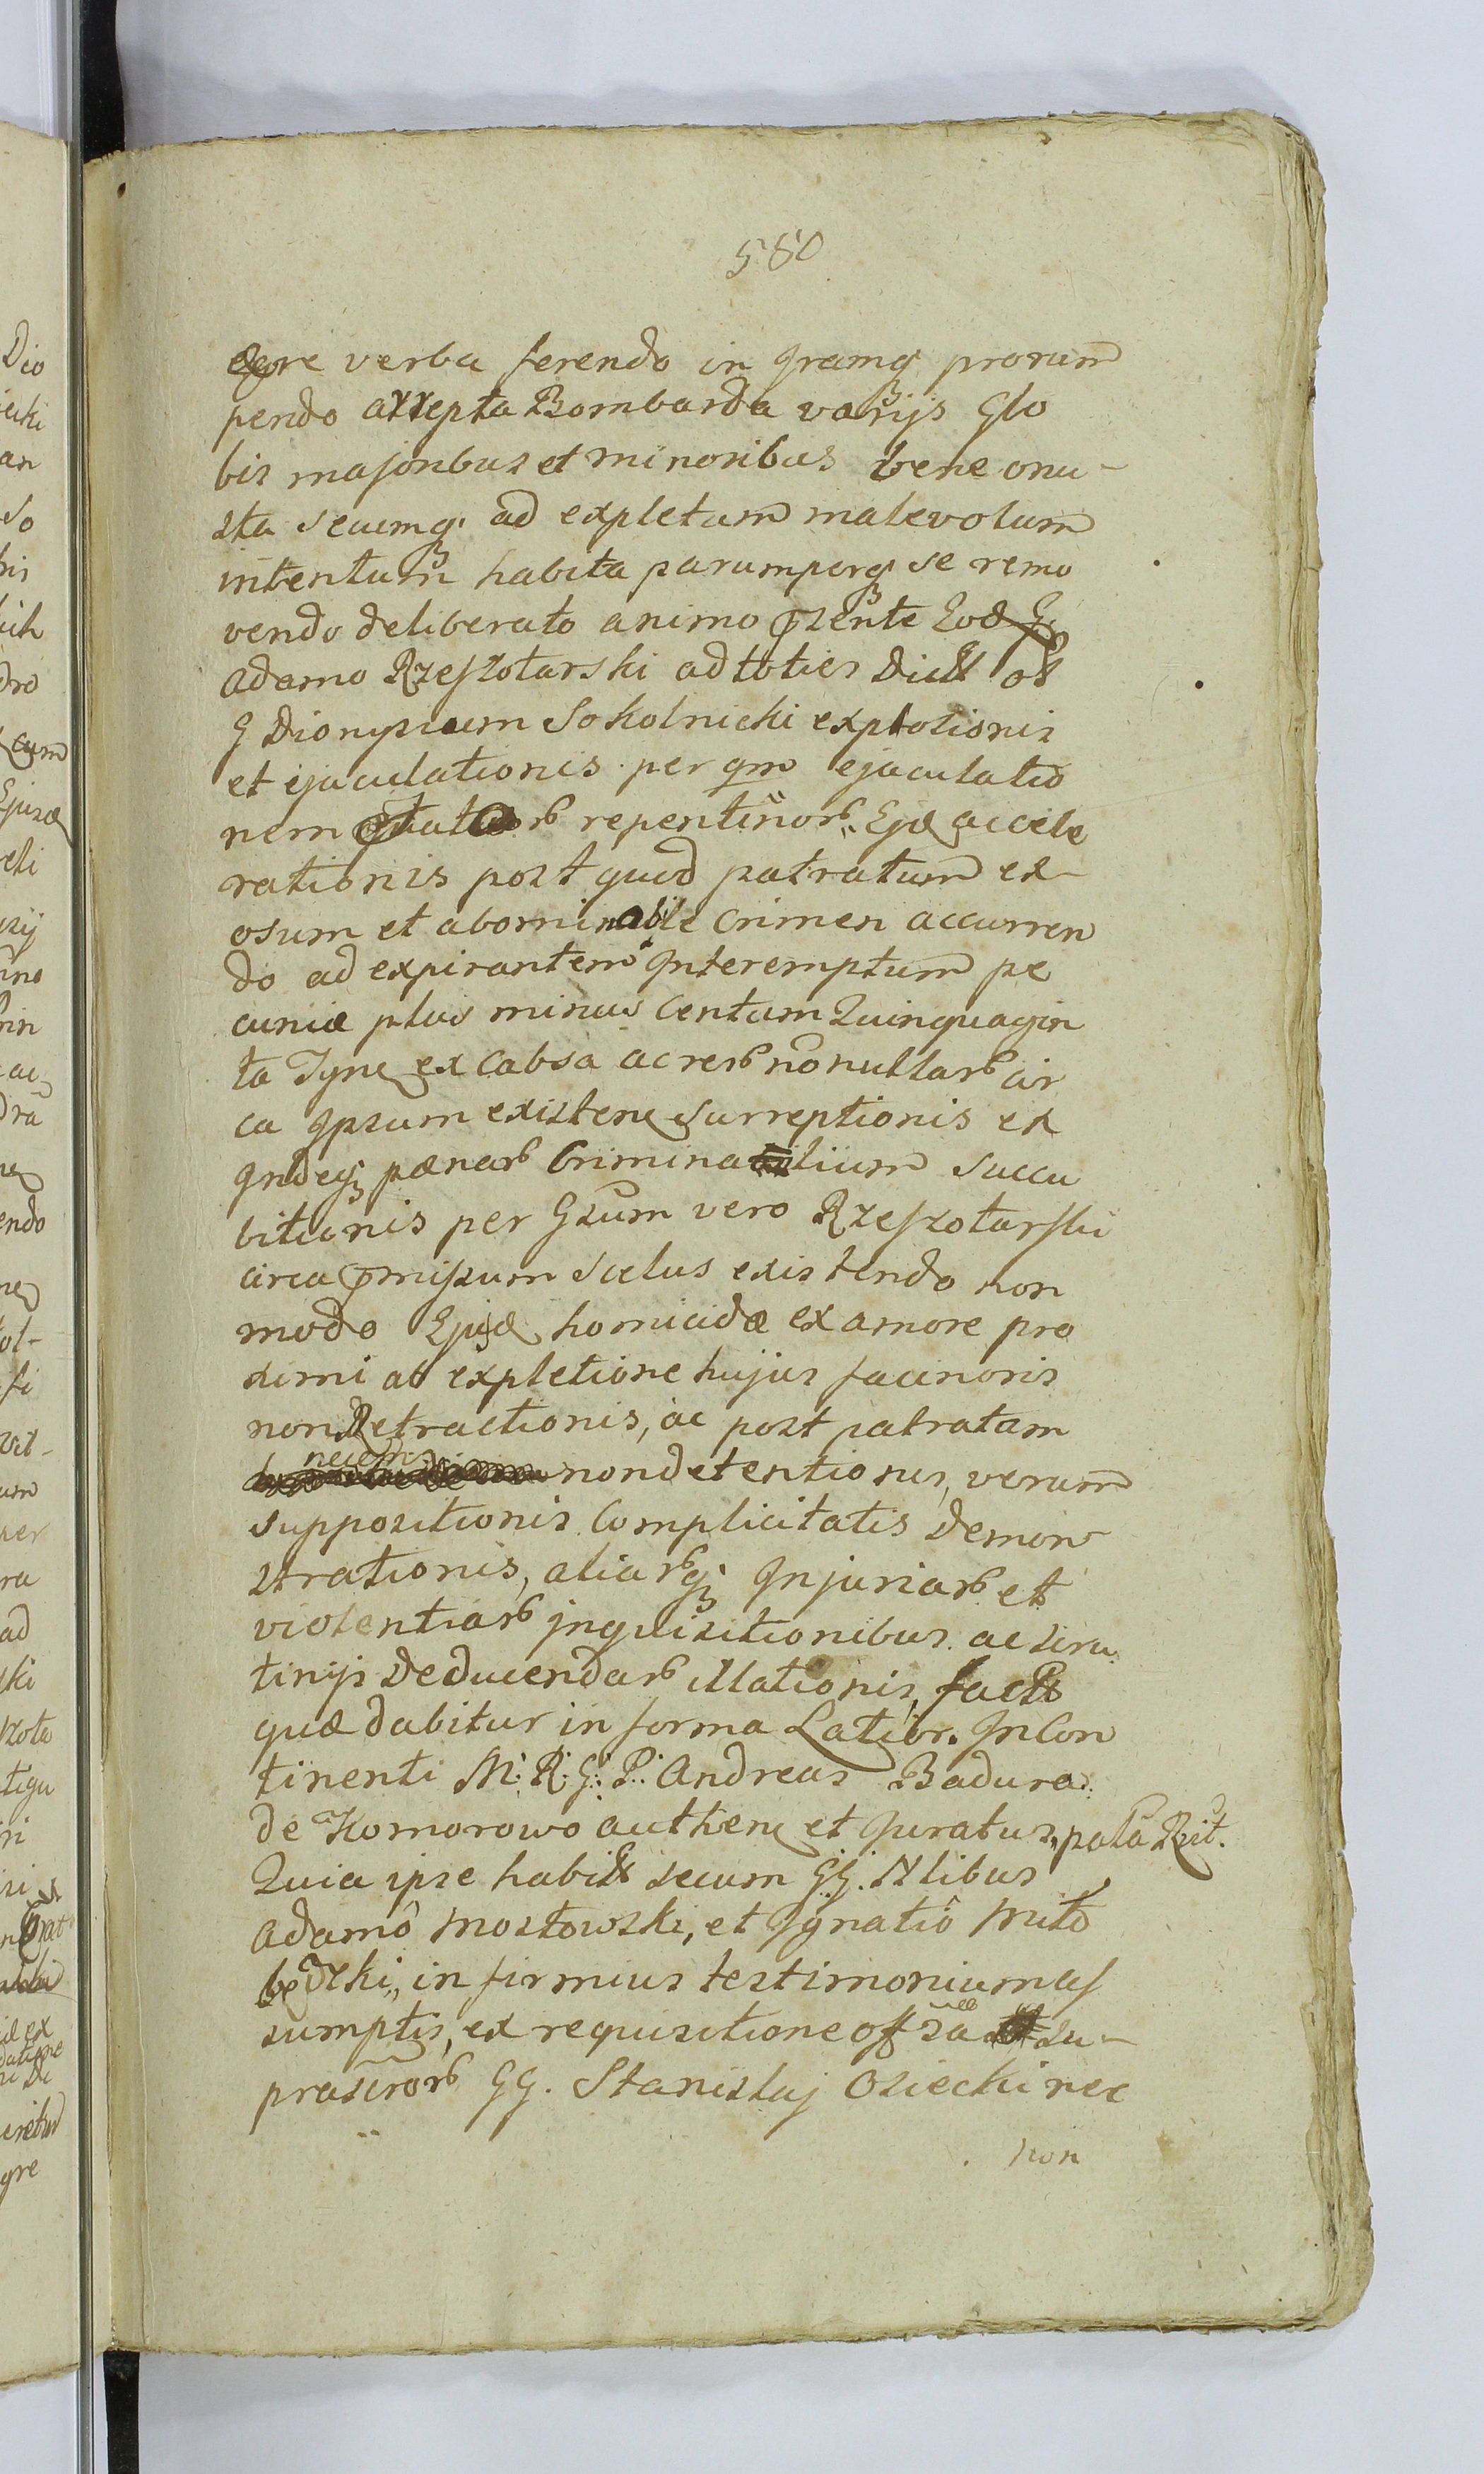 580
egre verba ferendo in Iramq prorum
pendo arrepta Bombarda varijs Glo
bis majoribus et minoribus bene onu-
sta secumq ad expletum malevolum
intentum habita parumperq se remo
vendo deliberato animo pzente Eod G
Adamo Rzeszotarski ad toties Dict ol
G Dionysium Sokolnicki explosionis
et ejaculationis per qm ejaculatio
nem repentinor Ejd accele
rationis post quod patratum ex-
osum et abominabile Crimen accurren
do ad expirantem Interemptum pe
cuniæ plus minus Centum Quinquagin
ta Tyn ex Cabsa ac rer nonullar cir
ca Ipsum existen surreptionis ex
Indeq pænar Criminalium Succu
bitionis per Gsum vero Rzeszotarski
circa pmissum Scelus existendo non
modo Ejusd homicidæ ex amore pro
ximi ab expletione hujus facinoris
non Retractionis, ac post patratam
necem non detentionis, verum
suppositionis Complicitatis Demon
strationis, aliarq Injuriar et
violentiar inquisitionibus ac scru
tinijs Deducendar illationis, fact
quæ dabitur in forma Latior. InCon
tinenti M: R: G: P: Andreas Badura
de Komorowo authen et Juratus, palã Rcit.
Quia ipse habit secum GG. Nlibus
Adamô Mostowski, et Ignatiô Mito
bedzki, in firmius testimonium as
sumptis, ex requisitione off sã su-
prascror GG. Stanislaj Osiecki nec
non